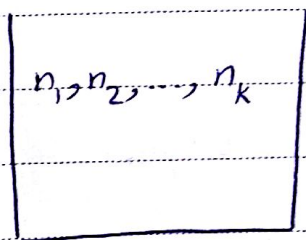 n₁, n₂, ..., nₖ